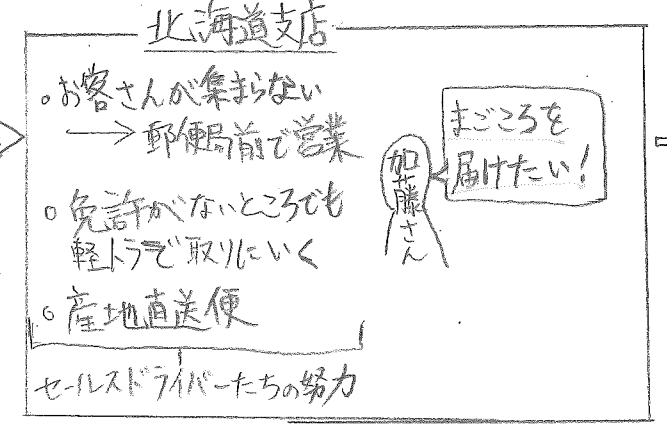 北海道支店
。お客さんが集まらない
→郵便局前で営業
○免許がないところでも
軽トラで取りにいく
○産地直送便
セールスドライバーたちの努力
まごころを
届けたい!
加藤さん